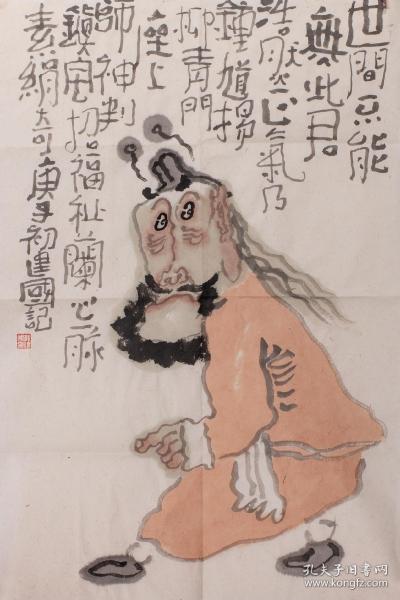 世間不能
無此君
浩然正氣乃
鍾馗揚
柳青門
座上
師神判
鎮宅招福祉蘭心一脉
素絹大可庚子初建國記
孔夫子旧书网
www.kongfz.com